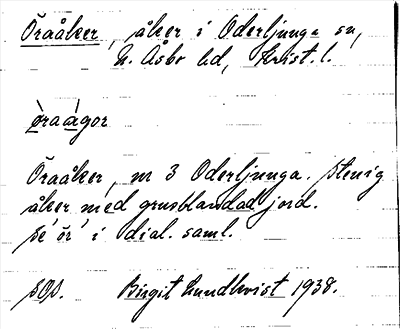 Öraåker, åker i Oderljunga sn,
N. Åsbo hd, Krist. l.
ø̀raágor
Öraåker, nr 3 Oderljunga. Stenig
åker med grusblandad jord.
se 'ör' i dial. saml.
sOp. Birgit Lundkvist 1938.